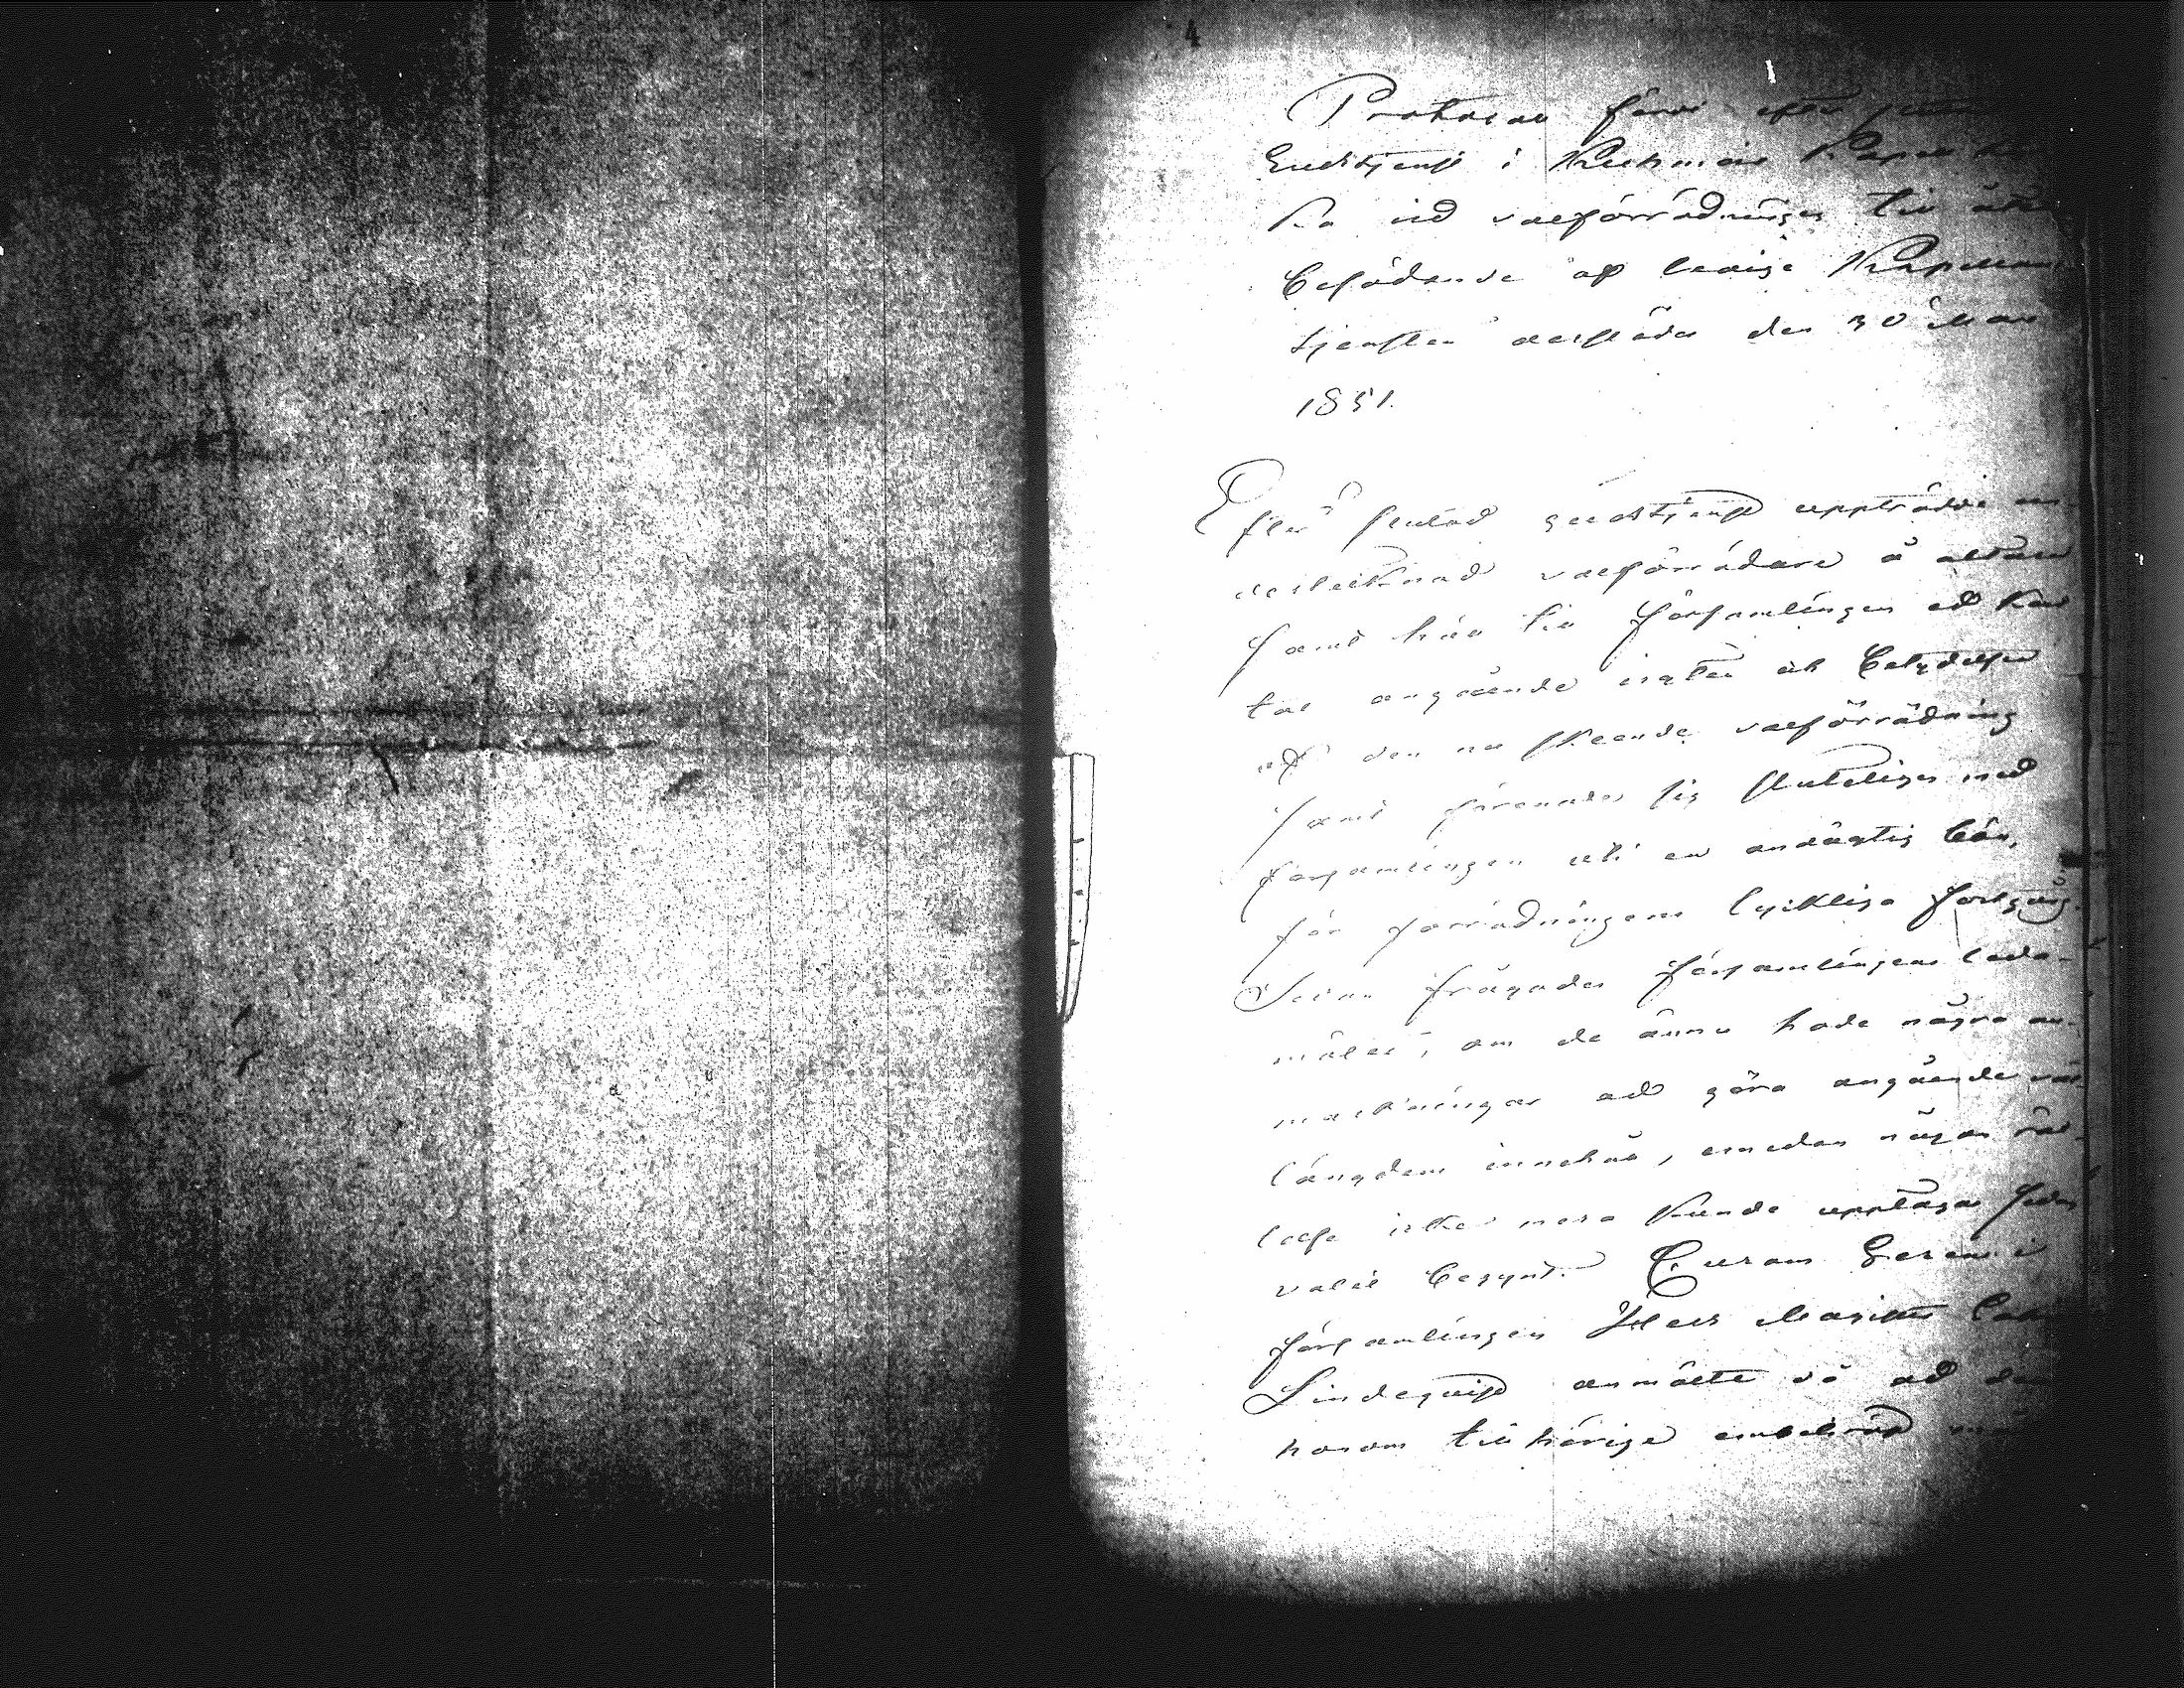 4
Protocoll fördt efter
Gudstjenst i Kuhmois Kapell
ka vid valförrädningen till åter
besättande af lediga Kapellans
tjensten derstädes den 30 Mars
1851.
Efter slutad gudstjenst uppträdde un
dertecknad valförrädare å altaren
samt höll till församlingen ett kort
tal angående vigten och betydelsen
af den nu skeende valförrädning
samt förenade sig sluteligen med
församlingen uti en andägtig bön,
för förrädningens lyckliga fortgång.
Sedan frågades församlingens leda-
möter, om de ännu hade några an-
märkningar att göra angående val
längdens innehåll, emedan någon
icke mera kunde upptagas sedan
valet begynt. Curam Gerens i
församlingen Herr Magister
Lindequist anmälte då att den
honom tillhörige